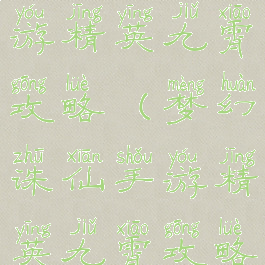 yóu jīng yīng jiǔ xiāo
游精英九霄
gōng lüè mèng huàn
攻略(梦幻
zhū xiān shǒu yóu jīng
诛仙手游精
yīng jiǔ xiāo gōng lüè
英九霄攻略